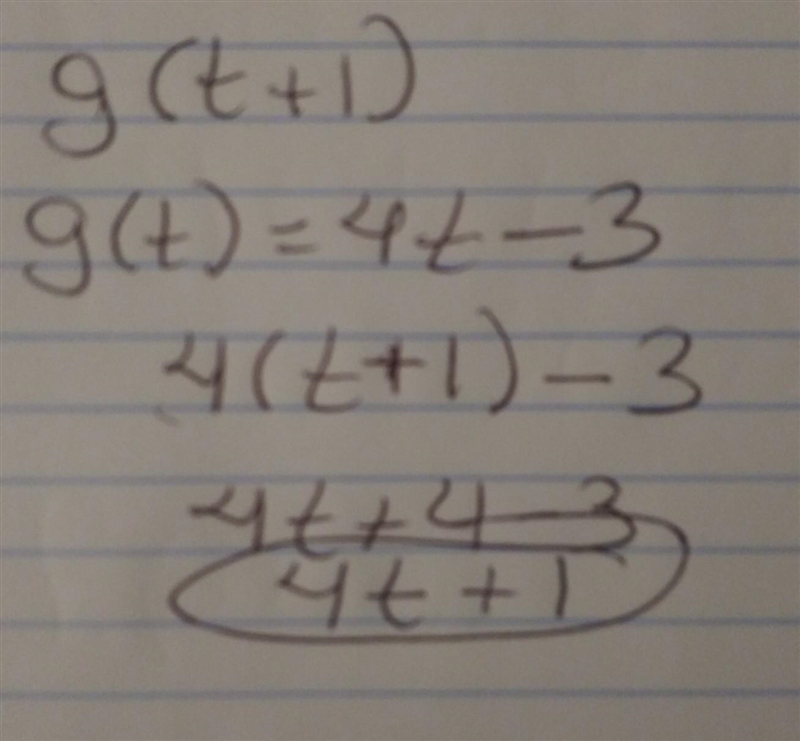 g(t+1)
g(t)=4t-3
4(t+1)-3
4t+4-3
4t+1